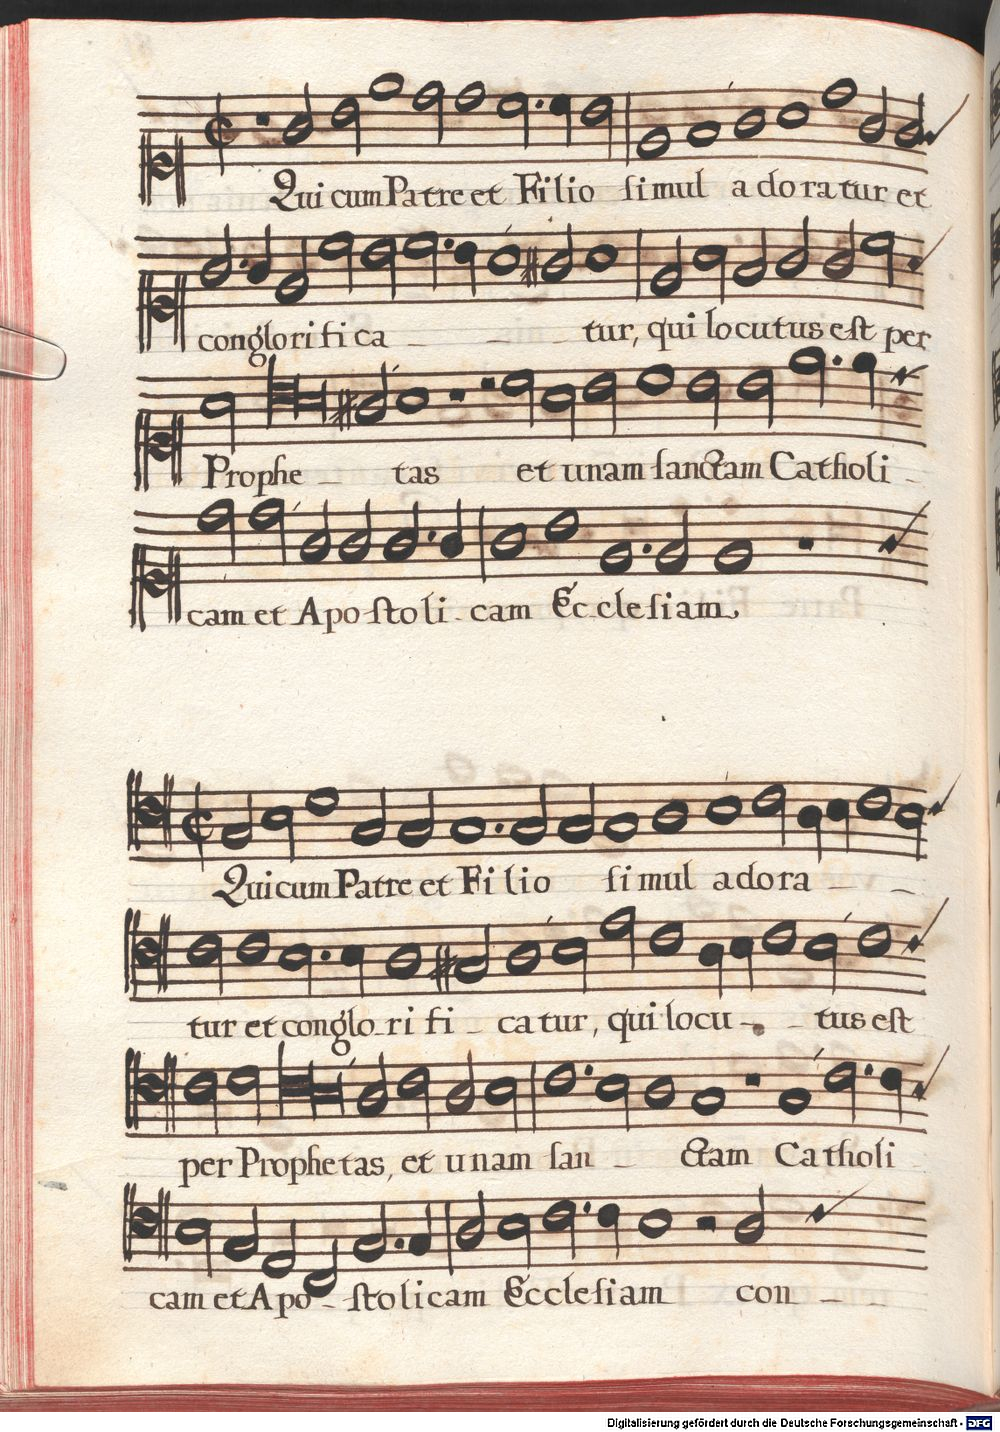 Qui cum Patre et Filio simul adoratur et
conglorifica - - - tur, qui locutus est per
Prophe - tas et unam sanctam Catholi -
cam et Apostoli - cam Ecclesiam.
Qui cum Patre et Filio simul adora - -
tur et conglo - rifi - catur, qui locu - - tus est
per Prophetas, et unam san - ctam Catholi -
cam et Apo - stolicam Ecclesiam con - -
Digitalisierung gefördert durch die Deutsche Forschungsgemeinschaft - DFG